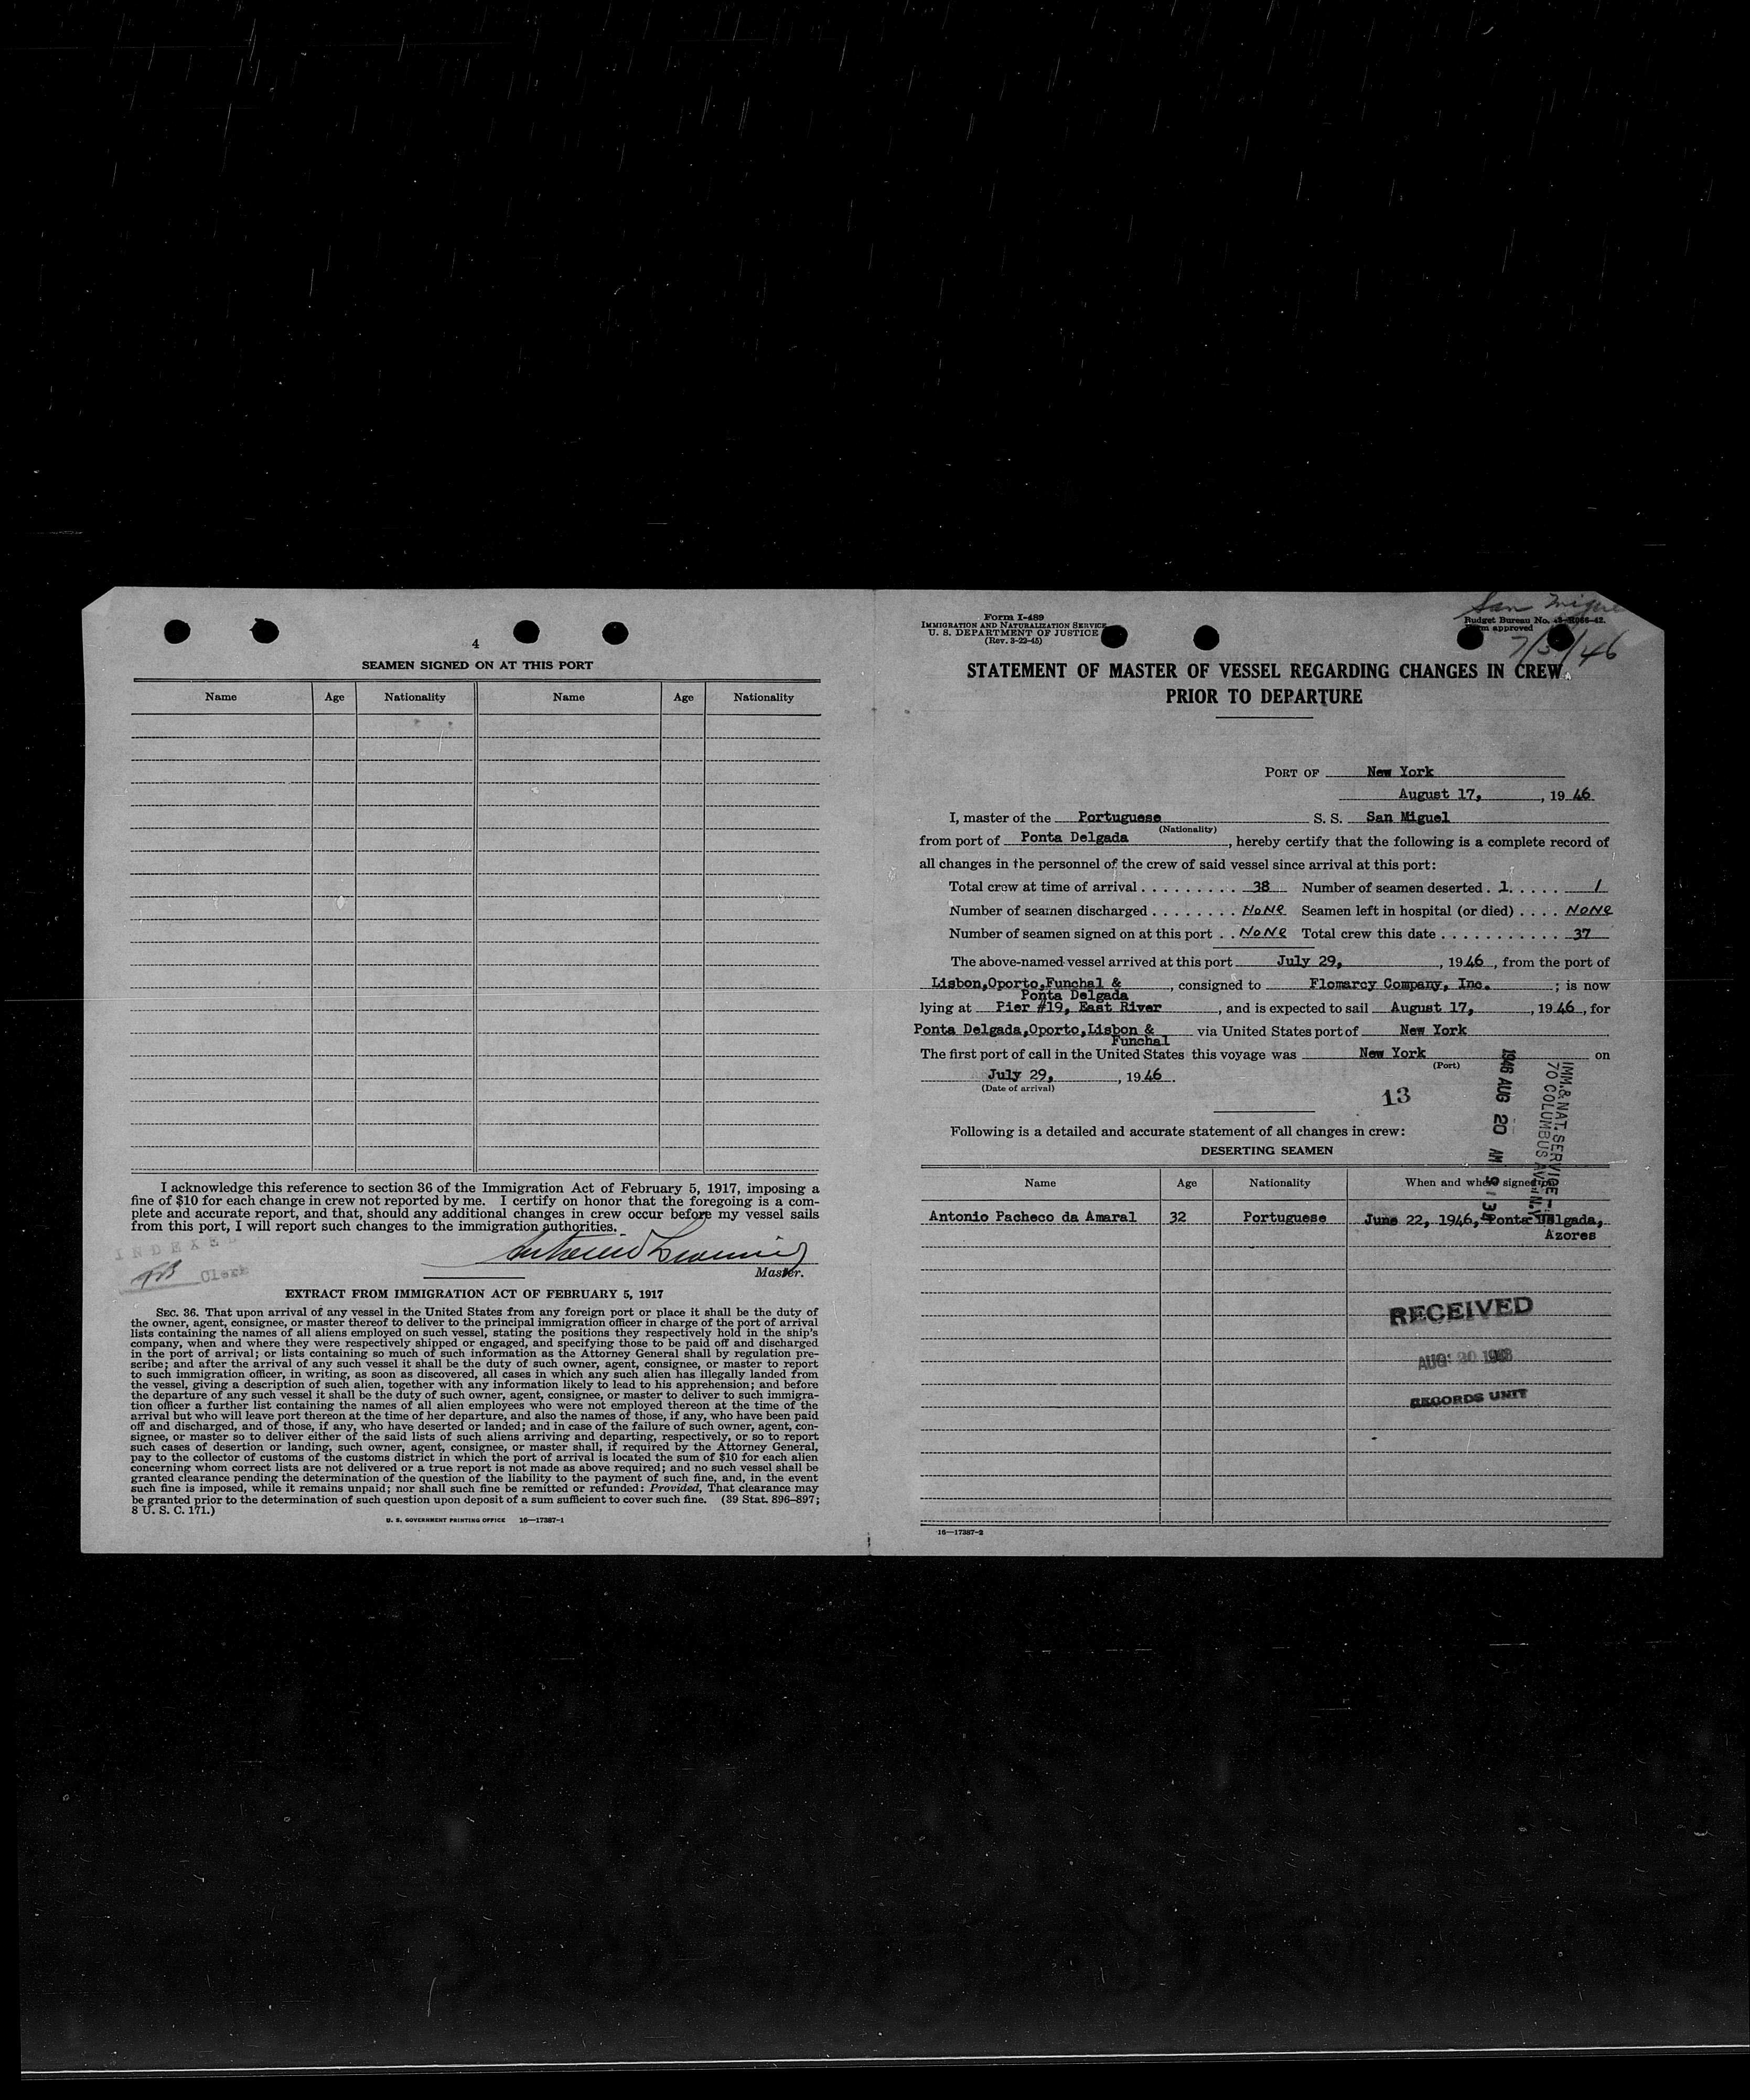 4
SEAMEN SIGNED ON AT THIS PORT
Name Age Nationality Name Age Nationality
I acknowledge this reference to section 36 of the Immigration Act of February 5, 1917, imposing a
fine of $10 for each change in crew not reported by me. I certify on honor that the foregoing is a com-
plete and accurate report, and that, should any additional changes in crew occur before my vessel sails
from this port, I will report such changes to the immigration authorities.
INDEXED
Clerk
Master.
EXTRACT FROM IMMIGRATION ACT OF FEBRUARY 5, 1917
SEC. 36. That upon arrival of any vessel in the United States from any foreign port or place it shall be the duty of
the owner, agent, consignee, or master thereof to deliver to the principal immigration officer in charge of the port of arrival
lists containing the names of all aliens employed on such vessel, stating the positions they respectively hold in the ship's
company, when and where they were respectively shipped or engaged, and specifying those to be paid off and discharged
in the port of arrival; or lists containing so much of such information as the Attorney General shall by regulation pre-
scribe; and after the arrival of any such vessel it shall be the duty of such owner, agent, consignee, or master to report
to such immigration officer, in writing, as soon as discovered, all cases in which any such alien has illegally landed from
the vessel, giving a description of such alien, together with any information likely to lead to his apprehension; and before
the departure of any such vessel it shall be the duty of such owner, agent, consignee, or master to deliver to such immigra-
tion officer a further list containing the names of all alien employees who were not employed thereon at the time of the
arrival but who will leave port thereon at the time of her departure, and also the names of those, if any, who have been paid
off and discharged, and of those, if any, who have deserted or landed; and in case of the failure of such owner, agent, con-
signee, or master so to deliver either of the said lists of such aliens arriving and departing, respectively, or so to report
such cases of desertion or landing, such owner, agent, consignee, or master shall, if required by the Attorney General,
pay to the collector of customs of the customs district in which the port of arrival is located the sum of $10 for each alien
concerning whom correct lists are not delivered or a true report is not made as above required; and no such vessel shall be
granted clearance pending the determination of the question of the liability to the payment of such fine, and, in the event
such fine is imposed, while it remains unpaid; nor shall such fine be remitted or refunded: Provided, That clearance may
be granted prior to the determination of such question upon deposit of a sum sufficient to cover such fine. (39 Stat. 896–897;
8 U. S. C. 171.)
U. S. GOVERNMENT PRINTING OFFICE 16—17387-1
Form I-489
IMMIGRATION AND NATURALIZATION SERVICE
U. S. DEPARTMENT OF JUSTICE
(Rev. 3-22-45)
San Miguel
Budget Bureau No.
Form approved
STATEMENT OF MASTER OF VESSEL REGARDING CHANGES IN CREW
PRIOR TO DEPARTURE
PORT OF New York
August 17, , 19 46
I, master of the Portuguese S. S. San Miguel
(Nationality)
from port of Ponta Delgada , hereby certify that the following is a complete record of
all changes in the personnel of the crew of said vessel since arrival at this port:
Total crew at time of arrival . . . . . . . . . 38 Number of seamen deserted . 1. . . . . 1
Number of seamen discharged . . . . . . . . NoNe Seamen left in hospital (or died) . . . . NoNe
Number of seamen signed on at this port . . NoNe Total crew this date . . . . . . . . . . . 37
The above-named vessel arrived at this port July 29, , 1946 , from the port of
Lisbon,Oporto,Funchal & , consigned to Flomarcy Company, Inc. ; is now
Ponta Delgada
lying at Pier #19, East River , and is expected to sail August 17, , 19 46 , for
Ponta Delgada,Oporto,Lisbon & via United States port of New York
Funchal
The first port of call in the United States this voyage was New York on
(Port)
July 29, , 19 46 .
(Date of arrival)
13
IMM. & NAT. SERVICE
70 COLUMBUS AV. N.Y.
1946 AUG 20 AM
Following is a detailed and accurate statement of all changes in crew:
DESERTING SEAMEN
Name Age Nationality When and where signed
Antonio Pacheco da Amaral 32 Portuguese June 22, 1946, Ponta Delgada,
Azores
RECEIVED
AUG 20 1946
RECORDS UNIT
16—17387-2